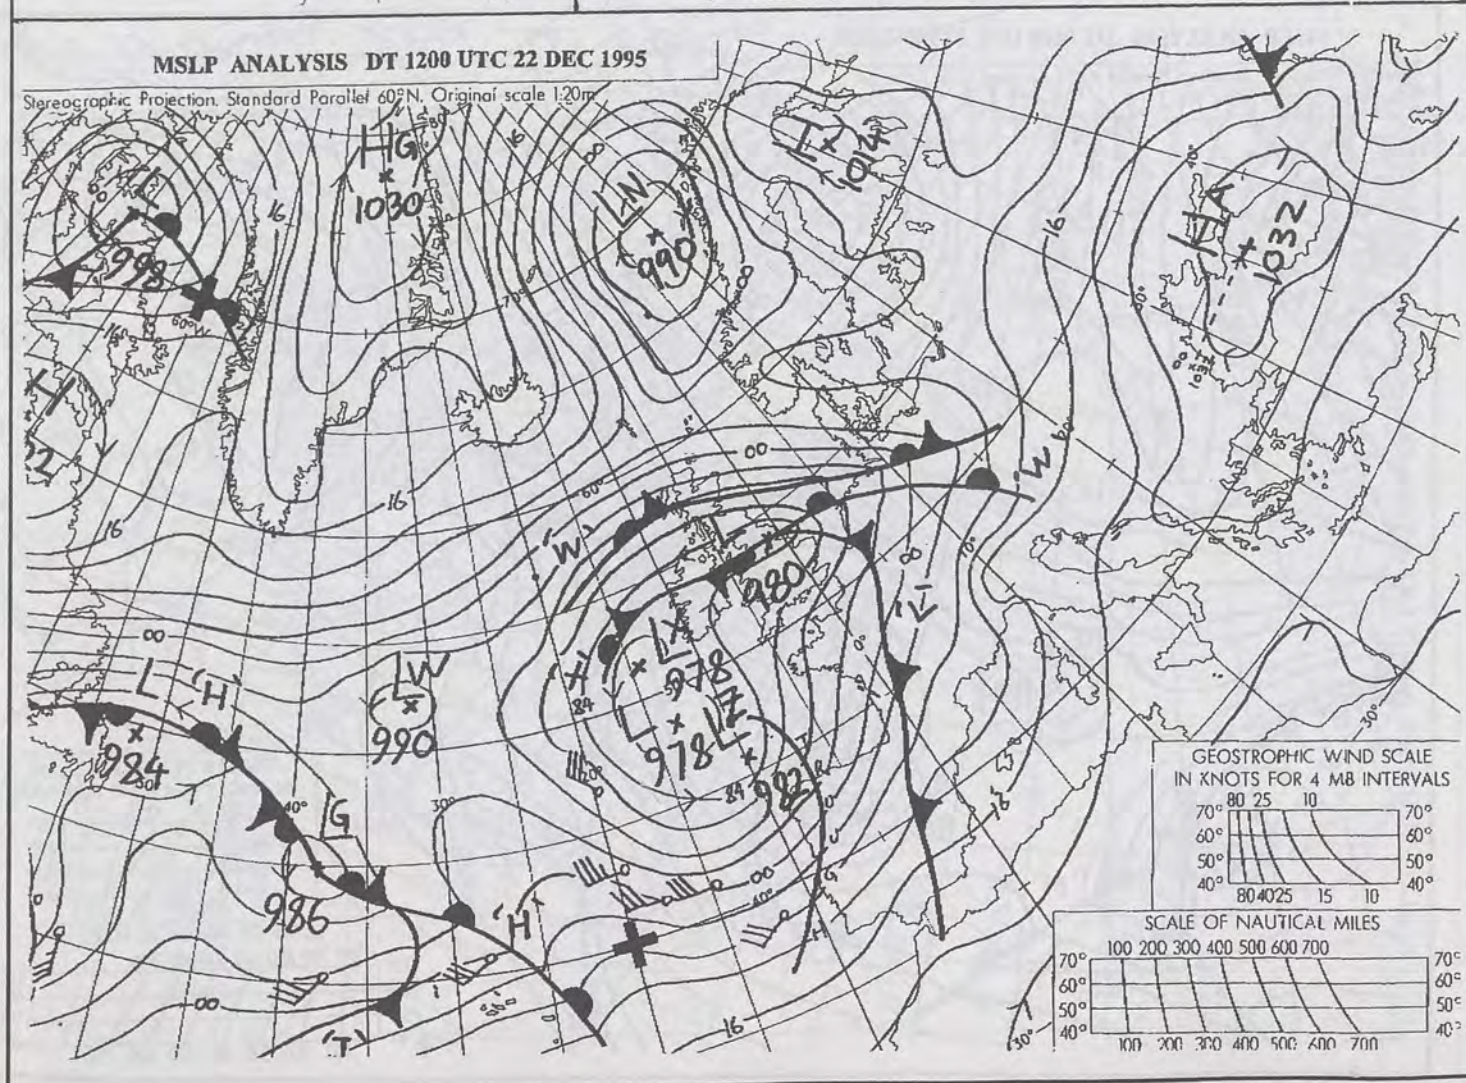 MSLP ANALYSIS DT 1200 UTC 22 DEC 1995
Stereographic Projection, Standard Parallel 60°N, Original scale 1:20m
L
998
HG
1030
16
16
LN
990
00
H
1014
HA
1032
16
60°W
16
70°
H
32
16
16
60°
00
'W'
'W'
L
980
00
'H'
LY
978
L
978
LZ
982
84
84
TROUGH
L
'H'
984
50°
LW
990
40°
30°
LG
986
'H'
'T'
00
00
16
16
40°
30°
30°
GEOSTROPHIC WIND SCALE
IN KNOTS FOR 4 MB INTERVALS
80 25 10
70° 70°
60° 60°
50° 50°
40° 40°
80 40 25 15 10
SCALE OF NAUTICAL MILES
100 200 300 400 500 600 700
70° 70°
60° 60°
50° 50°
40° 40°
100 200 300 400 500 600 700